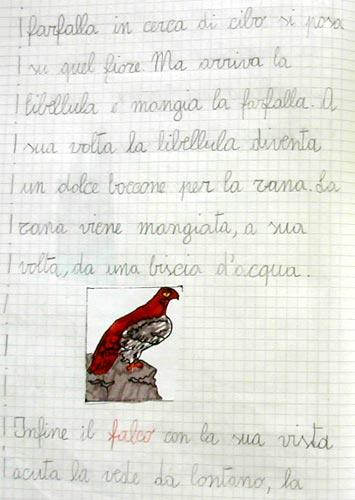 farfalla in cerca di cibo si posa
su quel fiore. Ma arriva la
libellula e mangia la farfalla. A
sua volta la libellula diventa
un dolce boccone per la rana. La
rana viene mangiata, a sua
volta, da una biscia d'acqua.
Infine il falco con la sua vista
acuta la vede da lontano, la